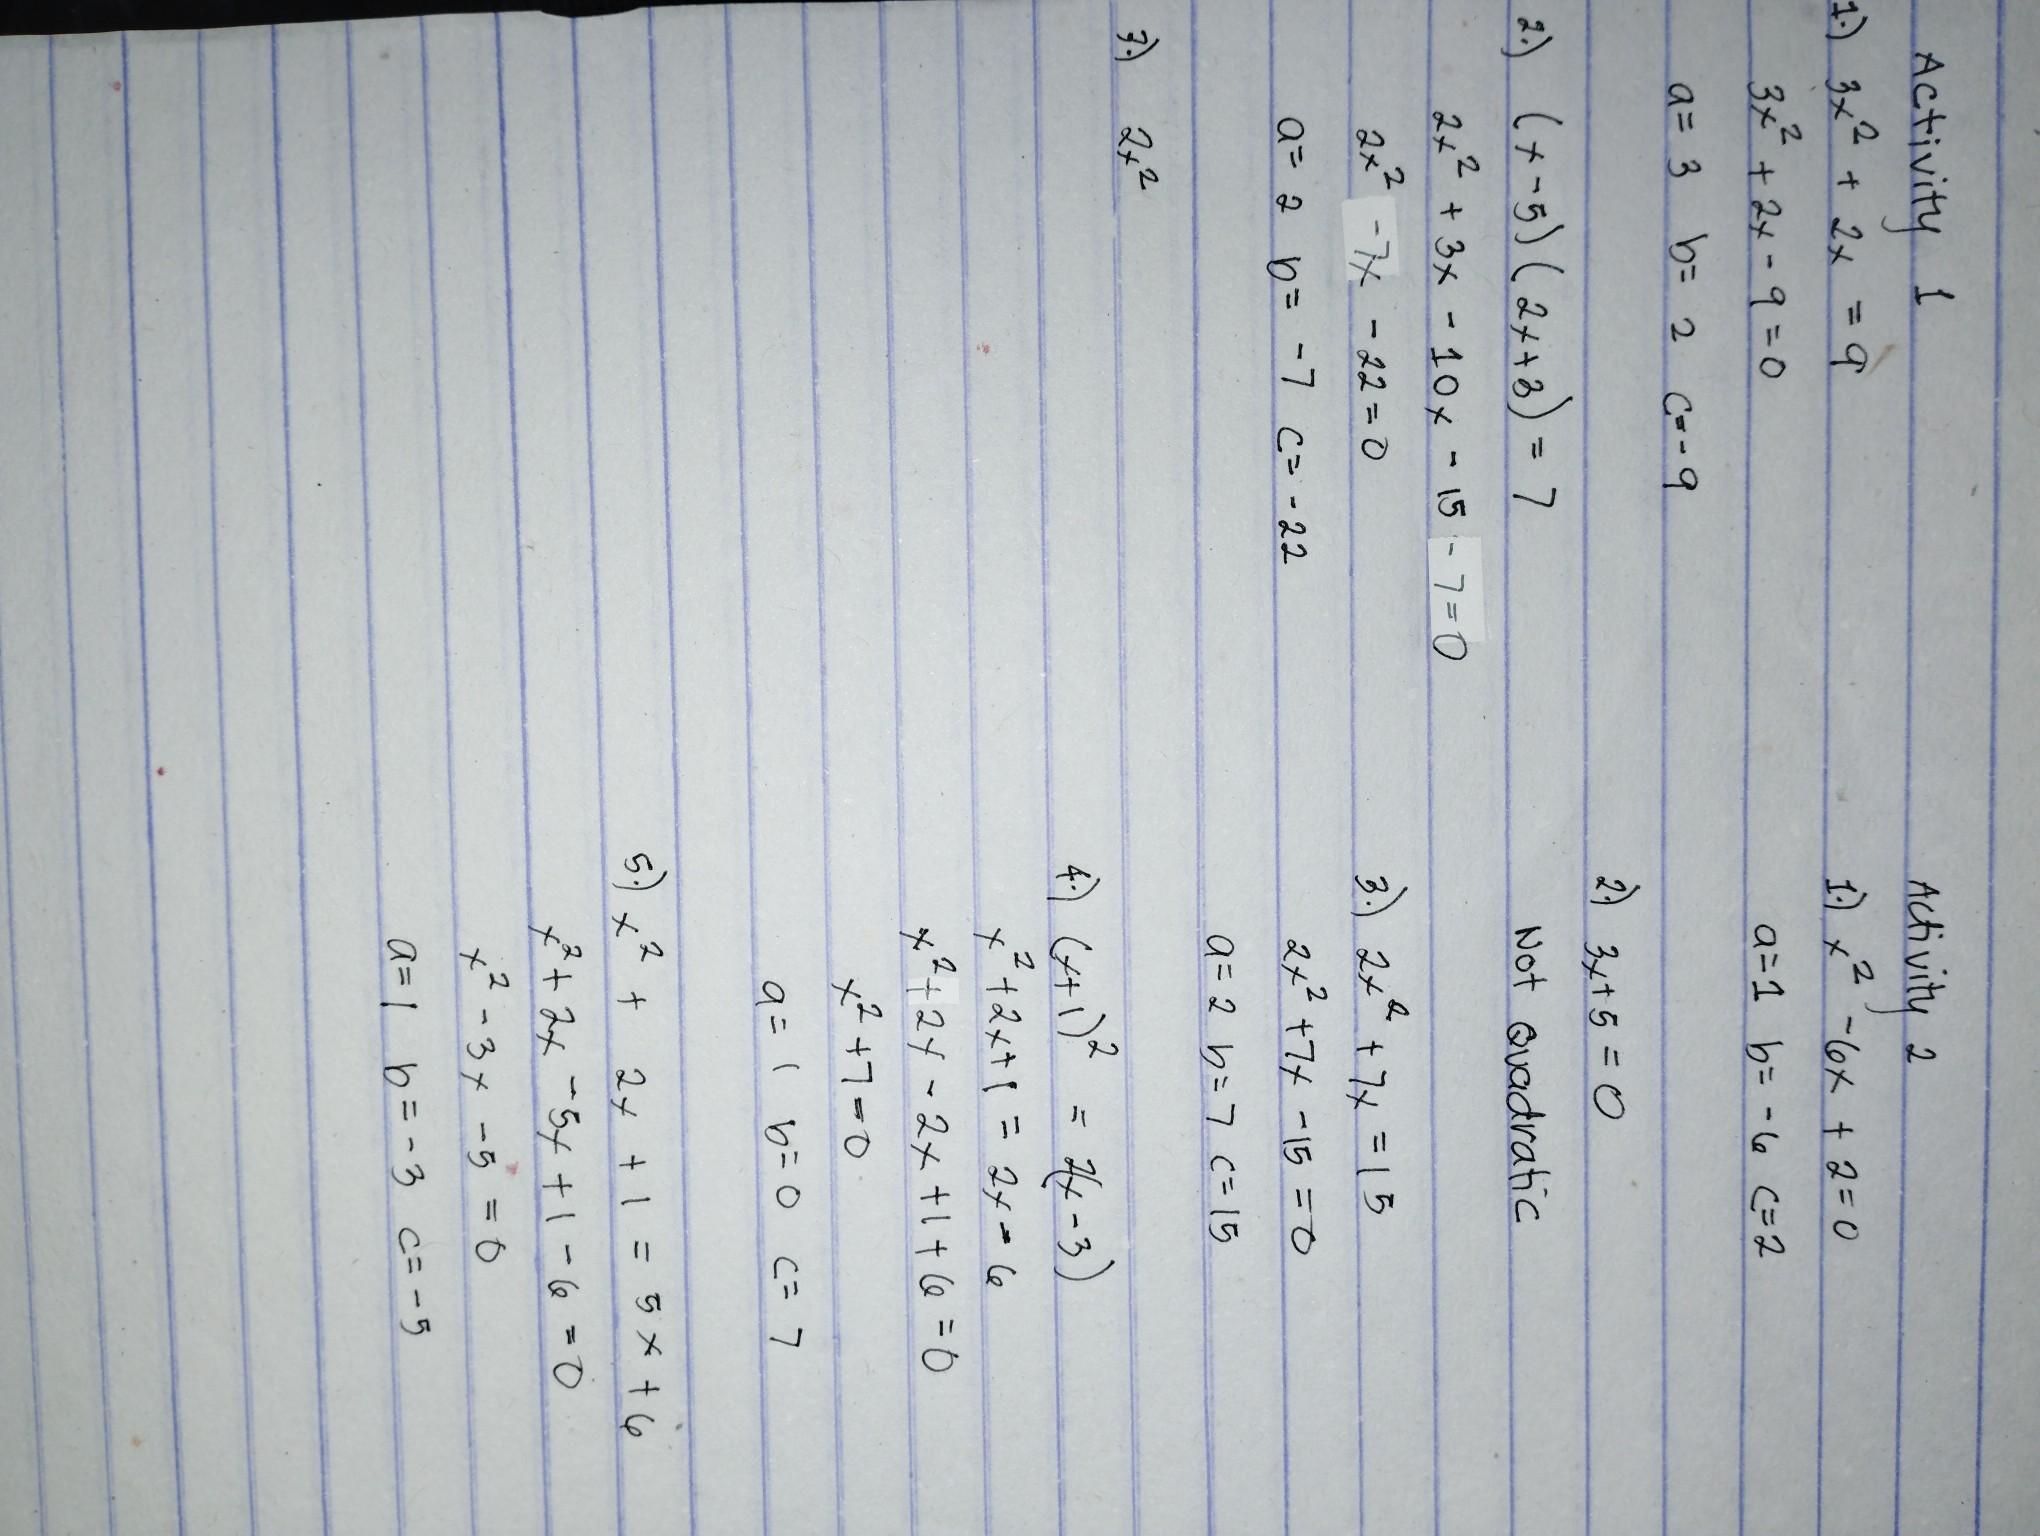 Activity 1
1.) 3x² + 2x = 9
3x² + 2x - 9 = 0
a = 3 b = 2 c = -9
2.) (x - 5) (2x + 3) = 7
2x² + 3x - 10x - 15 - 7 = 0
2x² - 7x - 22 = 0
a = 2 b = -7 c = -22
3.) 2x²
Activity 2
1.) x² - 6x + 2 = 0
a = 1 b = -6 c = 2
2.) 3x + 5 = 0
Not Quadratic
3.) 2x² + 7x = 15
2x² + 7x - 15 = 0
a = 2 b = 7 c = 15
4.) (x + 1)² = 2(x - 3)
x² + 2x + 1 = 2x - 6
x² + 2x - 2x + 1 + 6 = 0
x² + 7 = 0
a = 1 b = 0 c = 7
5.) x² + 2x + 1 = 5x + 6
x² + 2x - 5x + 1 - 6 = 0
x² - 3x - 5 = 0
a = 1 b = -3 c = -5